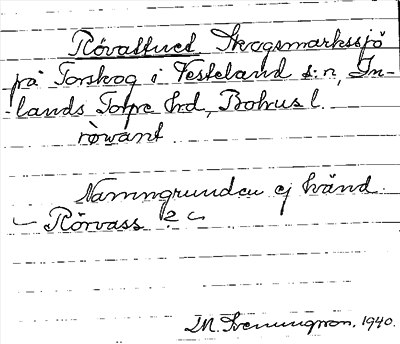 Rörvattnet Skogsmarkssjö
på Torskog i Vesteland s:n, In-
lands Torpe hrd, Bohus l.
rø̀want
Namngrunden ej känd.
Rörvass ?
M. Svenungsson. 1940.